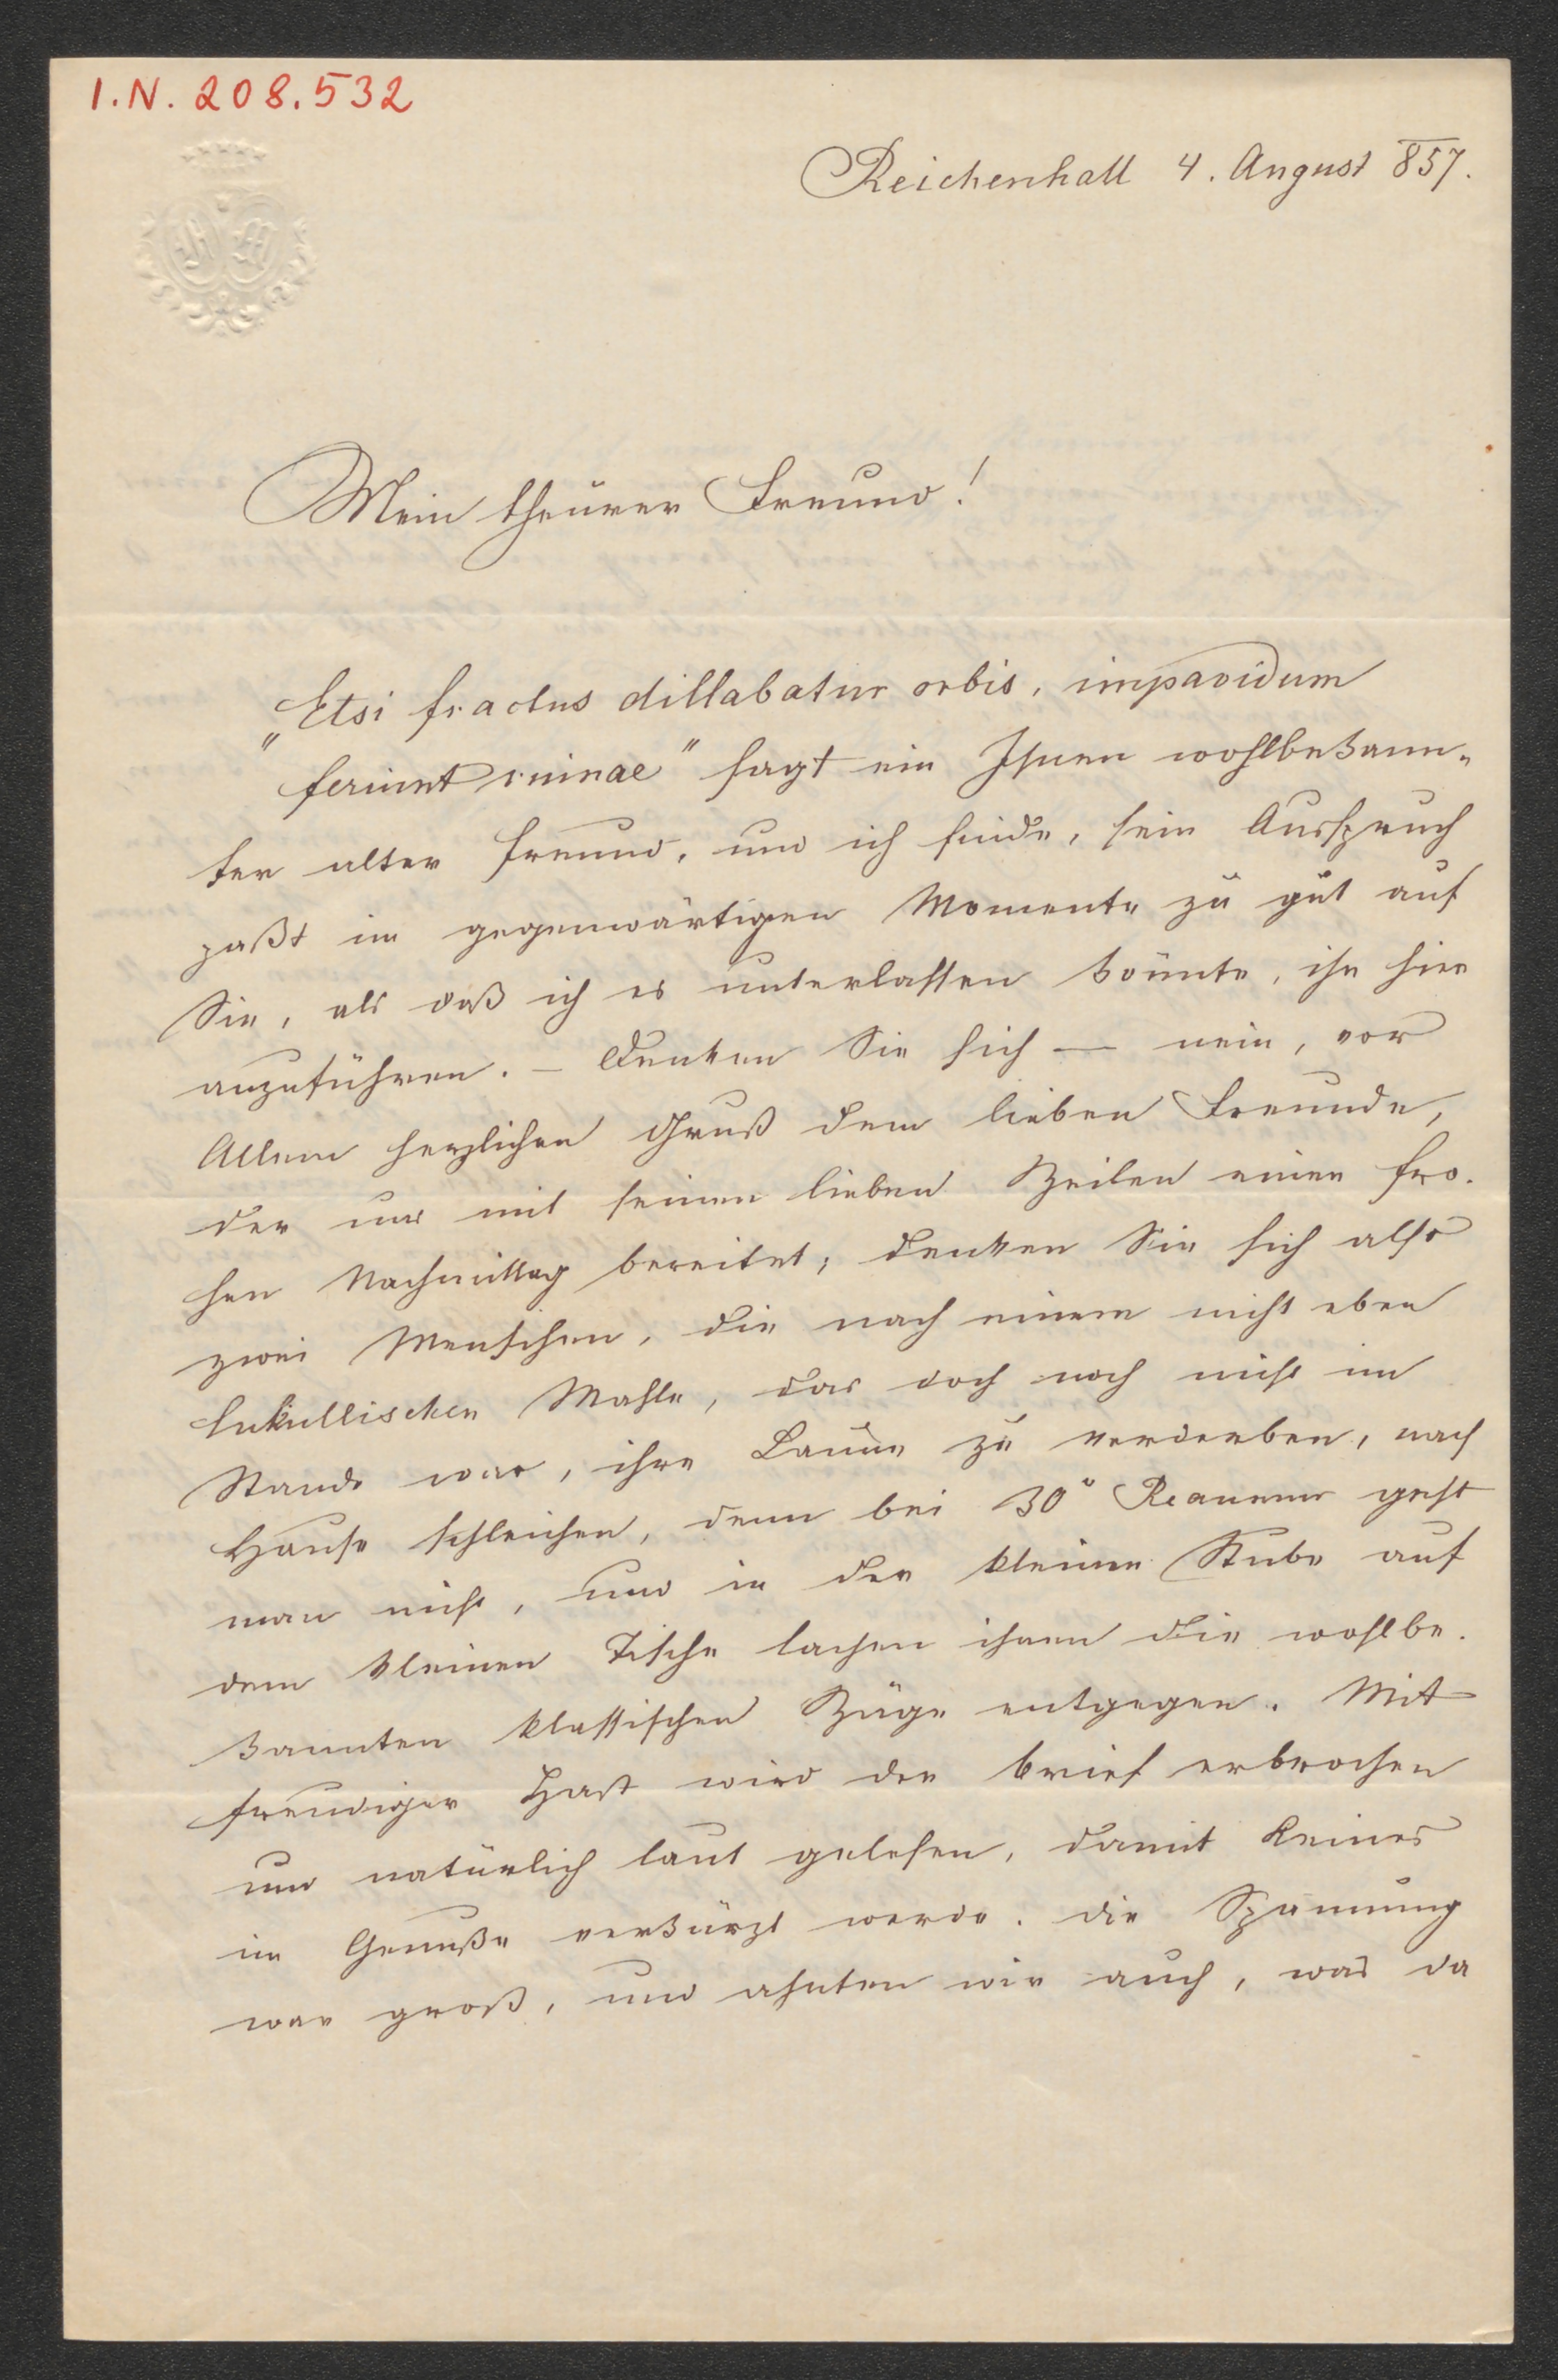 I.N. 208.532
Reichenhall 4. August 857.
Mein theurer Freund!
„Etsi fractus dillabatur orbis, impavidum
ferient ruinae" sagt ein Ihnen wohlbekann-
ter alter Freund, und ich finde, sein Ausspruch
paßt im gegenwärtigen Momente zu gut auf
Sie, als daß ich es unterlassen könnte, ihn hier
anzuführen. – Denken Sie sich — nein, vor
Allem herzlichen Gruß dem lieben Freunde,
der uns mit seinen lieben Zeilen einen fro-
hen Nachmittag bereitet; denken Sie sich also
zwei Menschen, die nach einem nicht eben
lukullischen Mahle, das doch noch nicht im
Stande war, ihre Laune zu verderben, nach
Hause schleichen, denn bei 30° Reaumur geht
man nicht, und in der kleinen Stube auf
dem kleinen Tische lachen ihnen die wohlbe-
kannten klassischen Züge entgegen. Mit
freudiger Hast wird der Brief erbrochen
und natürlich laut gelesen, damit Keines
im Genuße verkürzt werde. Die Spannung
war groß, und ahnten wir auch, was da